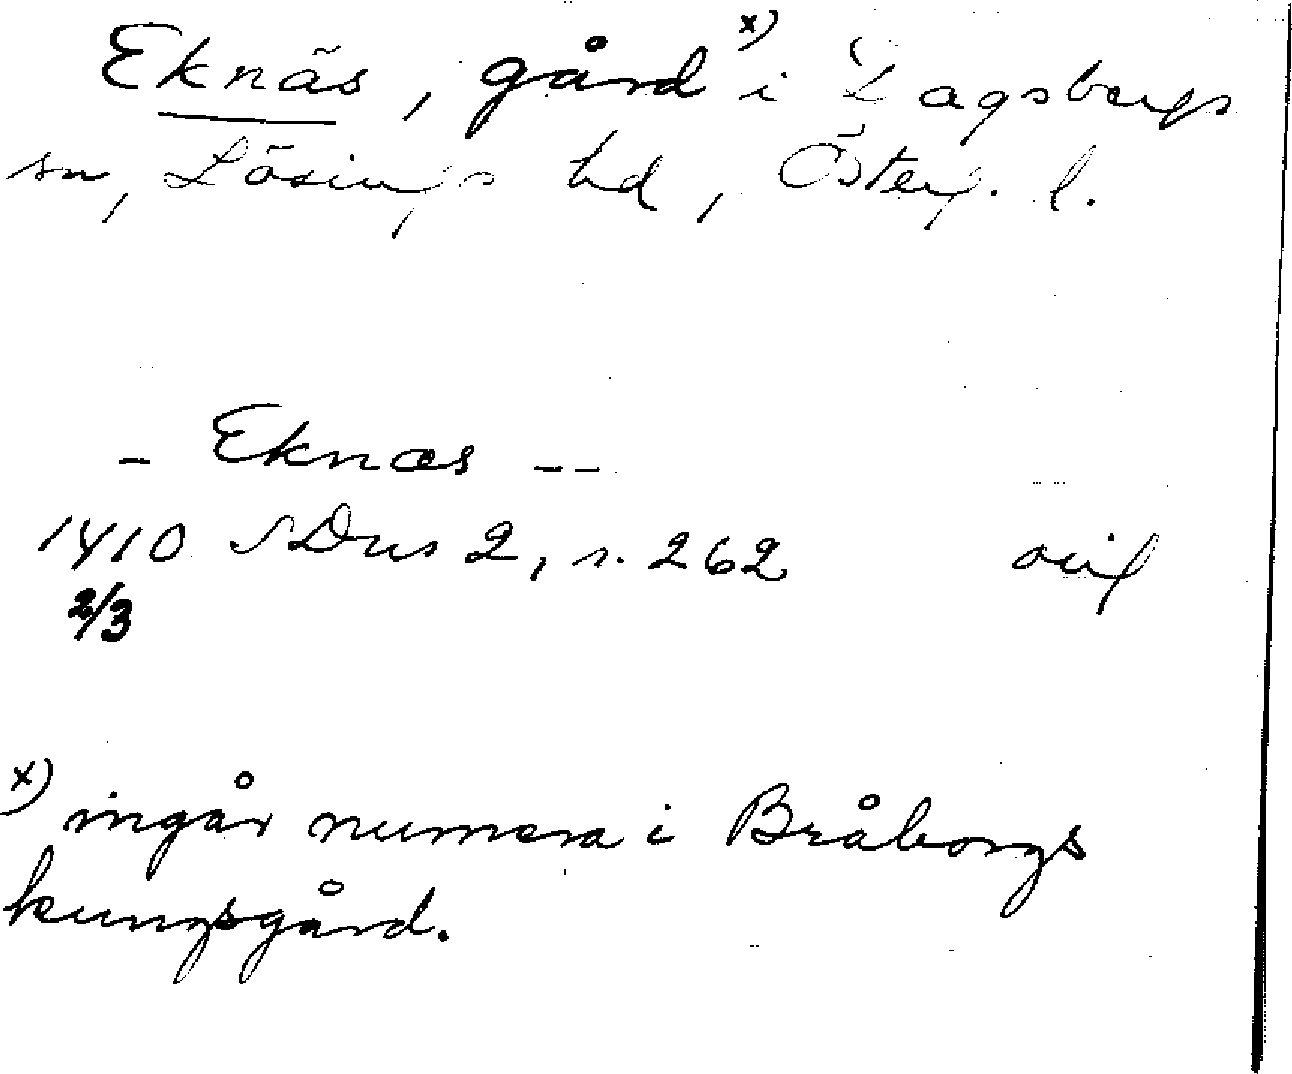 Eknäs, gård x) i Dagsbergs
sn, Lösings hd, Österg. l.
– Eknæs – –
1410 SDns 2, s. 262 orig
2/3
x) ingår numera i Bråborgs
kungsgård.